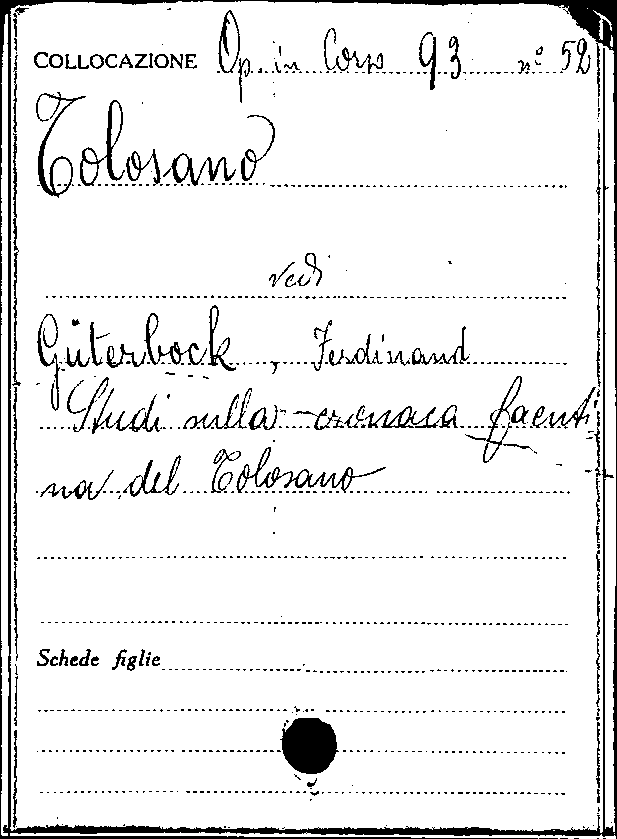 COLLOCAZIONE Op. in Cors 93 nº 52
Tolosano
vedi
Güterbock, Ferdinand
Studi sulla cronaca faenti-
na del Tolosano
Schede figlie